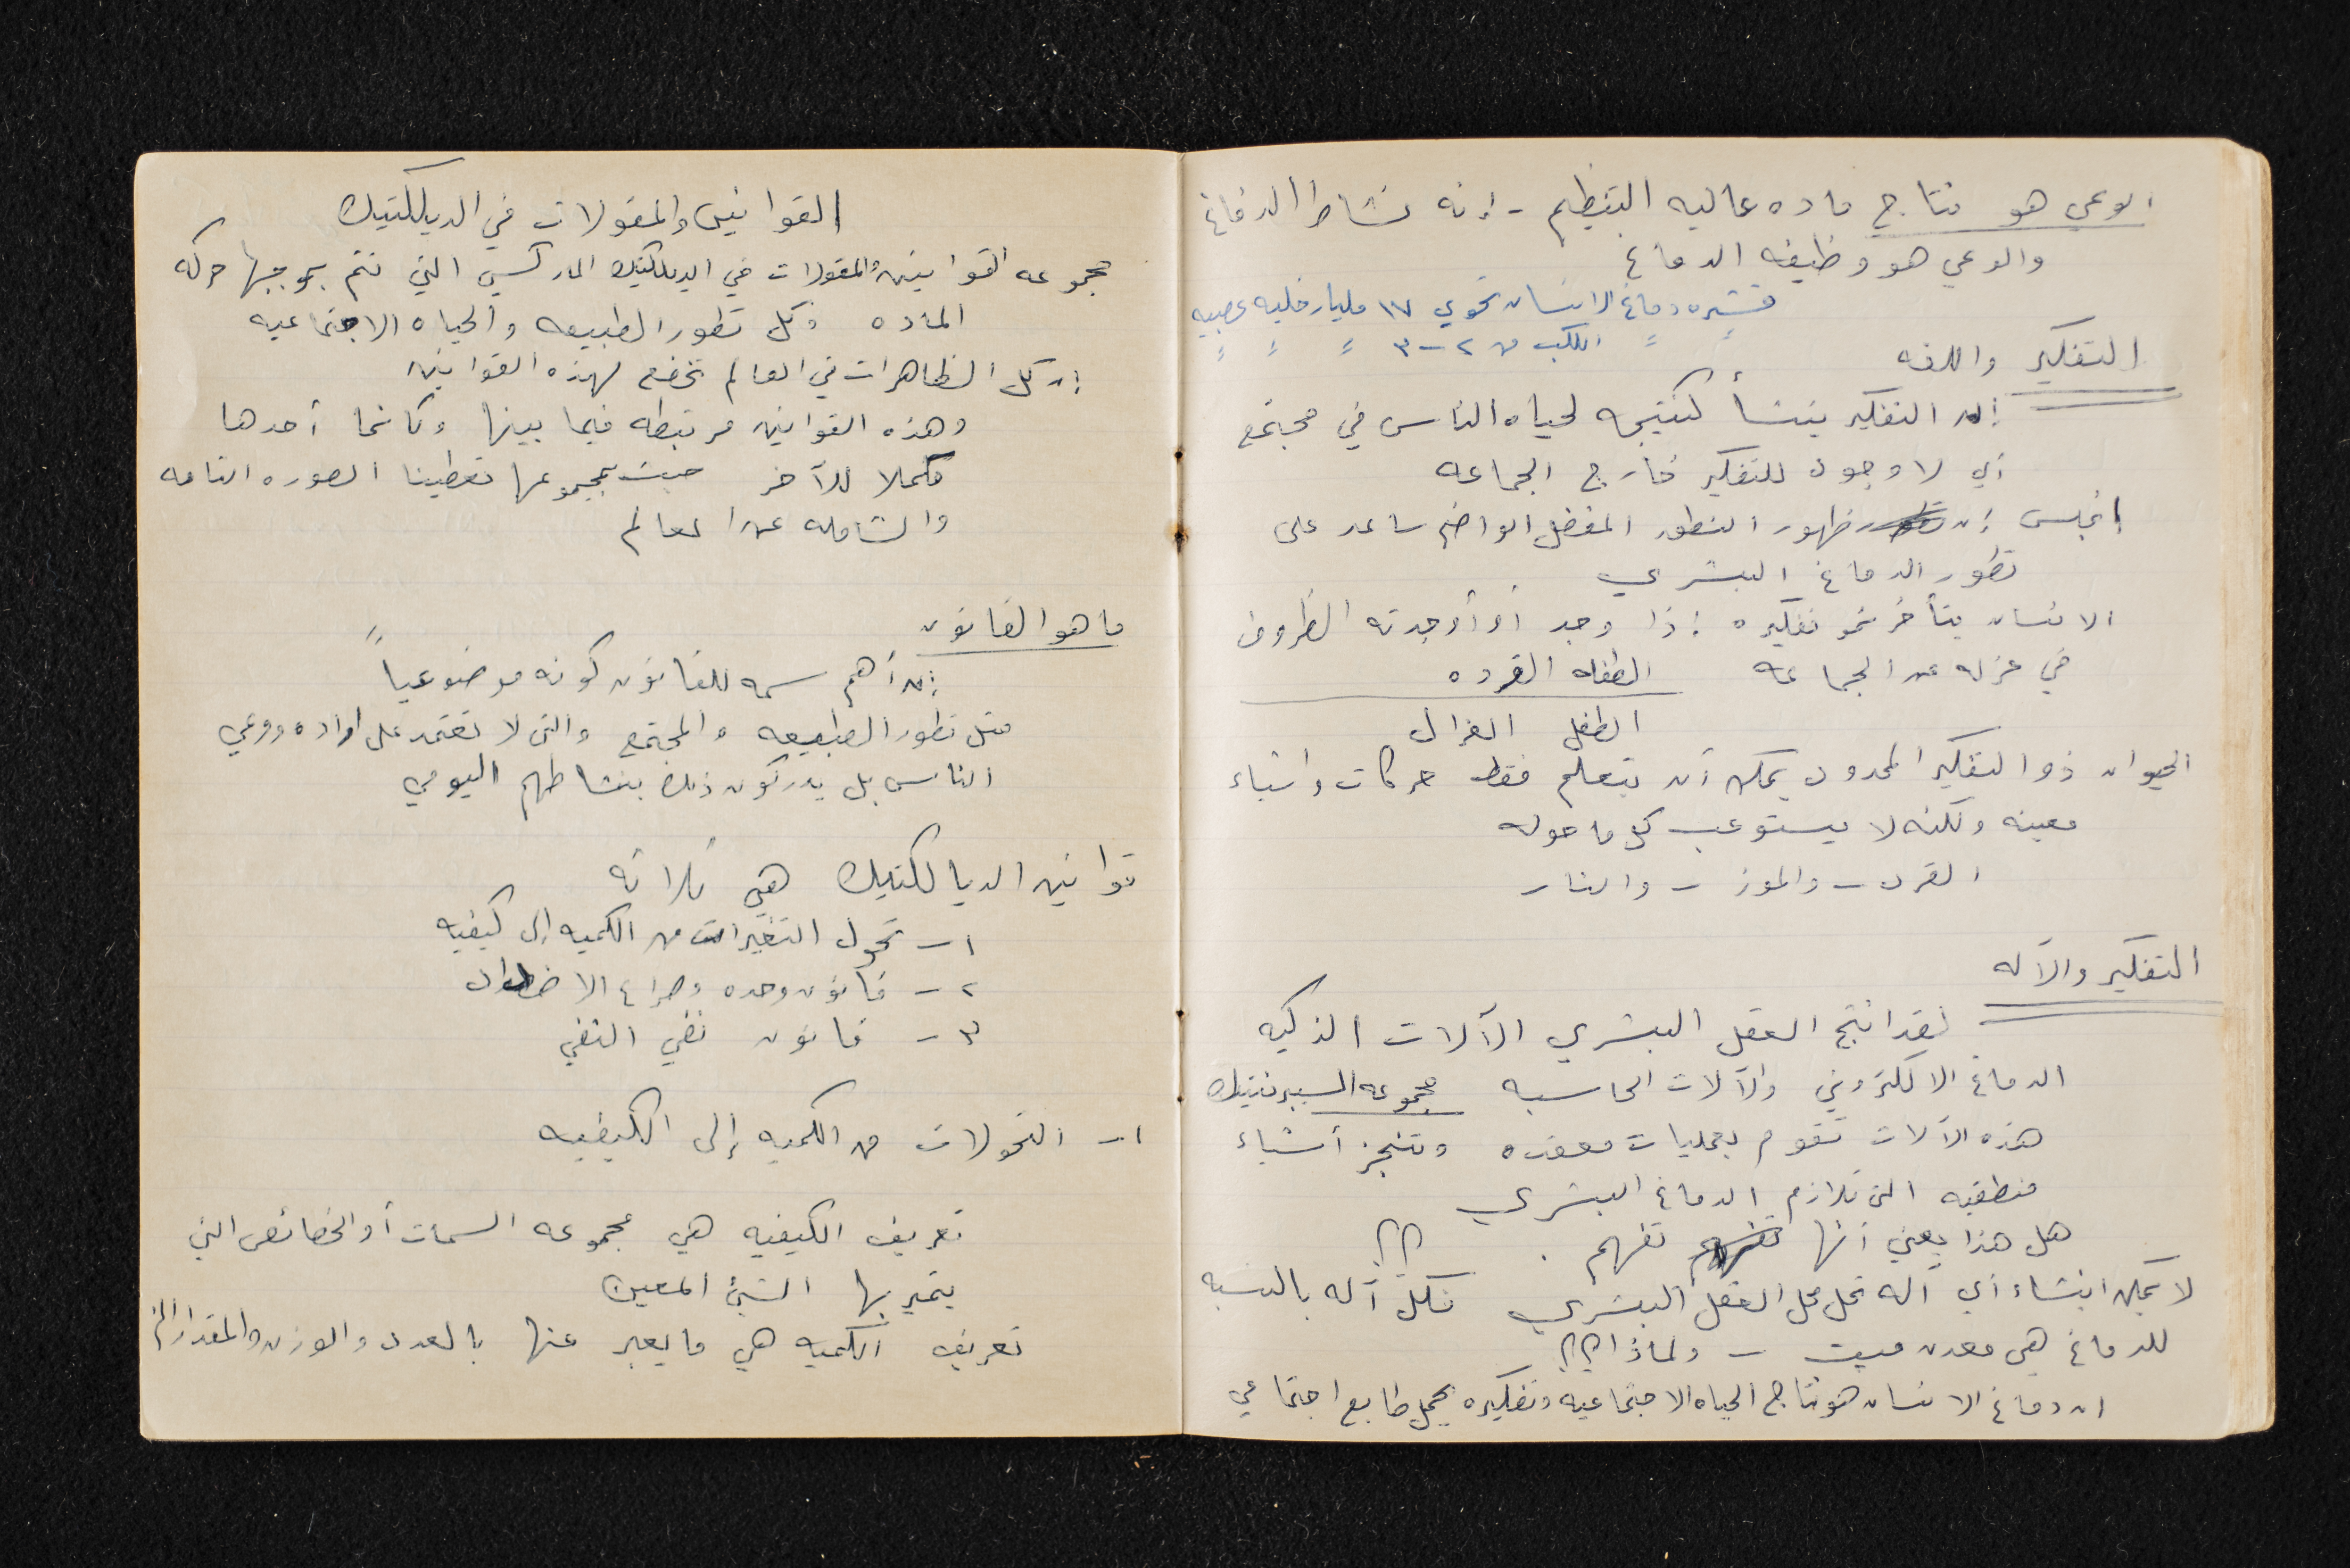 الوعي هو نتاج ماده عاليه التنظيم - إنه نشاط الدماغ
والوعي هو وظيفه الدماغ
قشره دماغ الانسان تحوي ١٧ مليار خليه عصبيه
〃 〃 الكلب من ٢-٣ 〃 〃 〃
التفكير واللغه
إن التفكير ينشأ كنتيجه لحياه الناس في مجتمع
أي لا وجود للتفكير خارج الجماعه
إنجلس إن ظهور النطق المفضل الواضح ساعد على
تطور الدماغ البشري
الانسان يتأخر نمو تفكيره إذا وجد أو أوجدته الظروف
في عزله عن الجماعه الطفله القرده
الطفل الغزال
الحيوان ذو التفكير المحدود يمكن أن يتعلم فقط حركات واشياء
معينه ولكنه لا يستوعب كل ما حوله
القرد - والموز - والنار
التفكير والآله
لقد انتج العقل البشري الآلات الذكيه
الدماغ الالكتروني والآلات الحاسبه مجموعه السبرنتيك
هذه الآلات تقوم بعمليات معقده وتنجز أشياء
منطقيه التي تلازم الدماغ البشري
هل هذا يعني أنها تفهم تفهم . ؟؟
لا يمكن انشاء أي آله تحل محل العقل البشري فكل آله بالنسبه
للدماغ هي معدن ميت - ولماذا ؟؟
ان دماغ الانسان هو نتاج الحياه الاجتماعيه وتفكيره يحمل طابع اجتماعي
القوانين والمقولات في الديالكتيك
مجموعه القوانين والمقولات في الديلكتيك الماركسي التي تتم بموجبها حركه
الماده وكل تطور الطبيعه والحياه الاجتماعيه
إن كل الظاهرات في العالم تخضع لهذه القوانين
وهذه القوانين مرتبطه فيما بينها وكانما أحدها
مكملا للآخر حيث بمجموعها تعطينا الصوره التامه
والشامله عن العالم
ما هو القانون
إن أهم سمه للقانون كونه موضوعياً
مثل تطور الطبيعه والمجتمع والتي لا تعتمد على اراده ووعي
الناس بل يدركون ذلك بنشاطهم اليومي
قوانين الديالكتيك هي ثلاثه
١ - تحول التغيرات من الكميه إلى كيفيه
٢ - قانون وحده وصراع الاضداد
٣ - قانون نفي النفي
١ - التحولات من الكميه إلى الكيفيه
تعريف الكيفيه هي مجموعه السمات أو الخصائص التي
يتميز بها الشئ المعين
تعريف الكميه هي ما يعبر عنها بالعدد والوزن والمقدار الخ